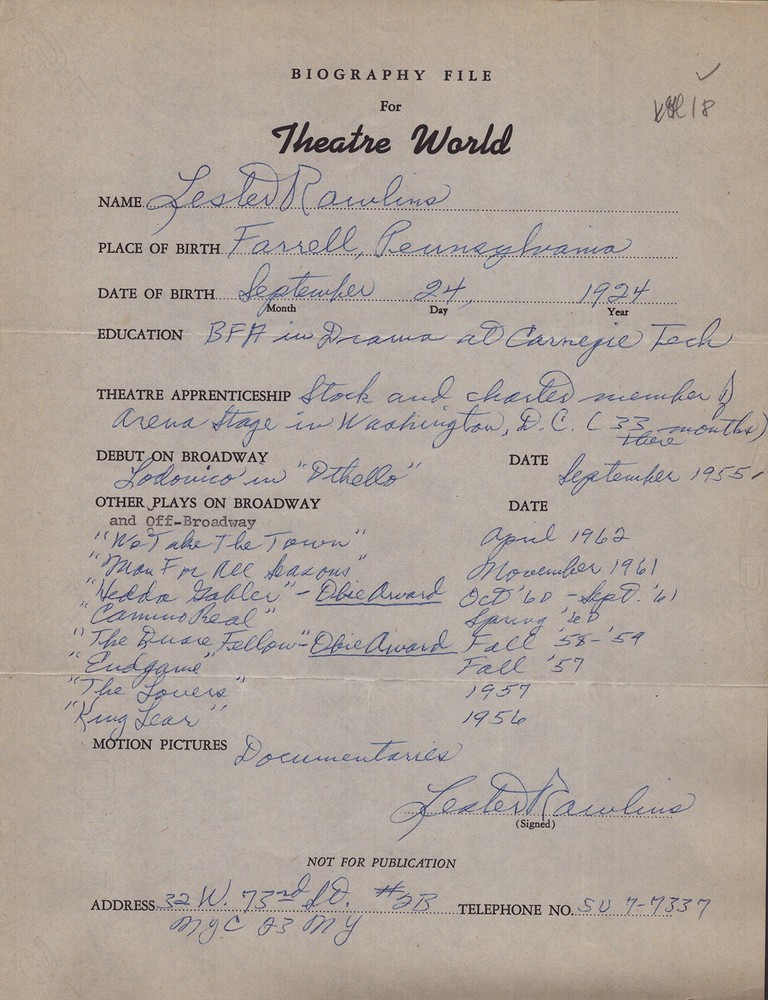 BIOGRAPHY FILE
For
Theatre World
18
NAME Lester Rawlins
PLACE OF BIRTH Farrell, Pennsylvania
DATE OF BIRTH September 24, 1924
Month Day Year
EDUCATION BFA in Drama at Carnegie Tech
THEATRE APPRENTICESHIP Stock and charter member of
Arena Stage in Washington, D.C. (33 months there)
DEBUT ON BROADWAY DATE
Lodovico in "Othello" September 1955
OTHER PLAYS ON BROADWAY DATE
and Off-Broadway
"We Take The Town" April 1962
"Man For All Seasons" November 1961
"Hedda Gabler" - Obie Award Oct '60 - Sept. '61
"Camino Real" Spring '60
"The Quare Fellow" - Obie Award Fall '58-'59
"Endgame" Fall '57
"The Lovers" 1957
"King Lear" 1956
MOTION PICTURES Documentaries
Lester Rawlins
(Signed)
NOT FOR PUBLICATION
ADDRESS 32 W. 73rd St. #2B TELEPHONE NO. SU 7-7337
NYC 23 NY